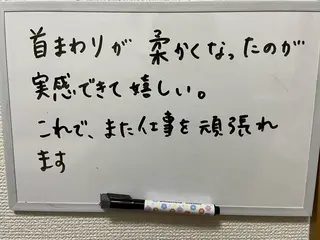 首まわりが 柔かくなったのが
実感できて嬉しい。
これで、また仕事を頑張れ
ます